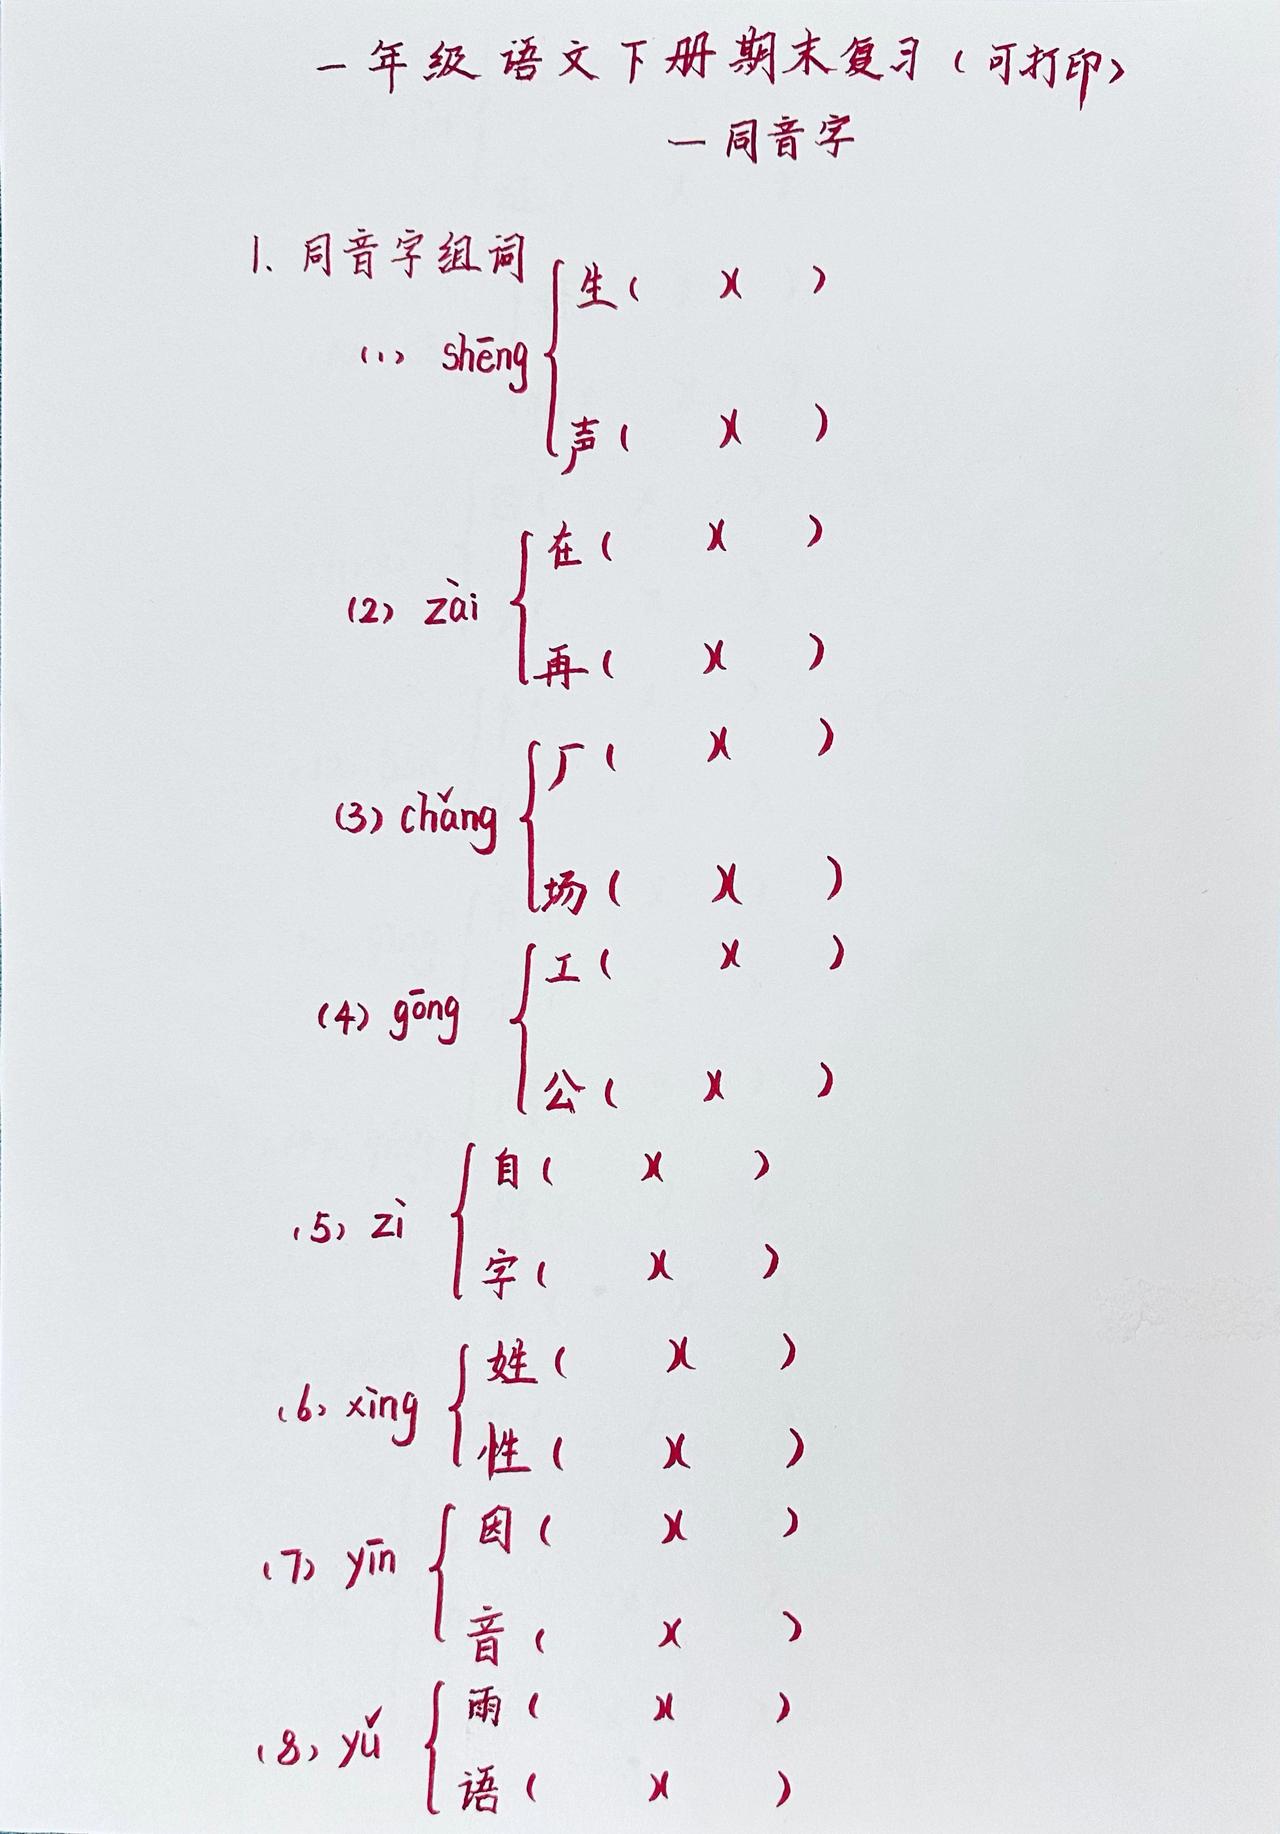 一年级语文下册期末复习(可打印)
一同音字
1、同音字组词
(1) shēng
生( )( )
声( )( )
(2) zài
在( )( )
再( )( )
(3) chǎng
厂( )( )
场( )( )
(4) gōng
工( )( )
公( )( )
(5) zì
自( )( )
字( )( )
(6) xìng
姓( )( )
性( )( )
(7) yīn
因( )( )
音( )( )
(8) yǔ
雨( )( )
语( )( )